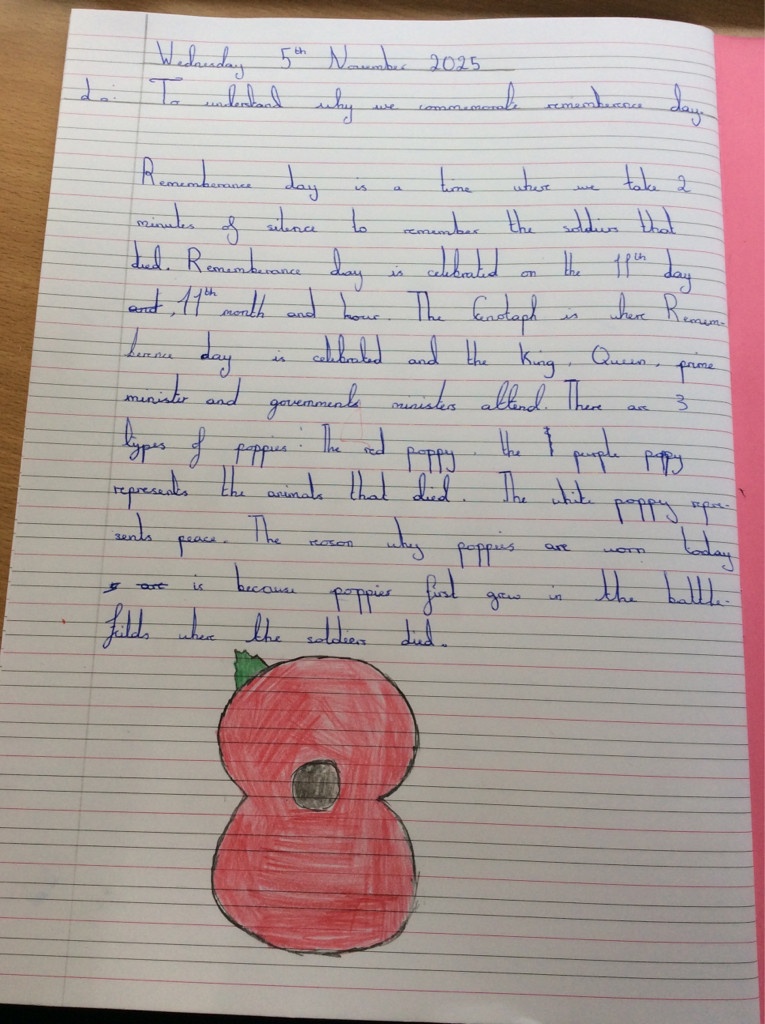 Wednesday 5th November 2025
L.o: To understand why we commemorate rememberence day.
Rememberance day is a time where we take 2
minutes of silence to remember the soldiers that
died. Rememberance day is celebrated on the 11th day
and, 11th month and hour. The Cenotaph is where Remem-
berence day is celebrated and the King, Queen, prime
minister and governments ministers attend. There are 3
types of poppies: The red poppy. the purple poppy
represents the animals that died. The white poppy repre-
sents peace. The reason why poppies are worn today
are is because poppies first grew in the battle-
fields where the soldiers died.